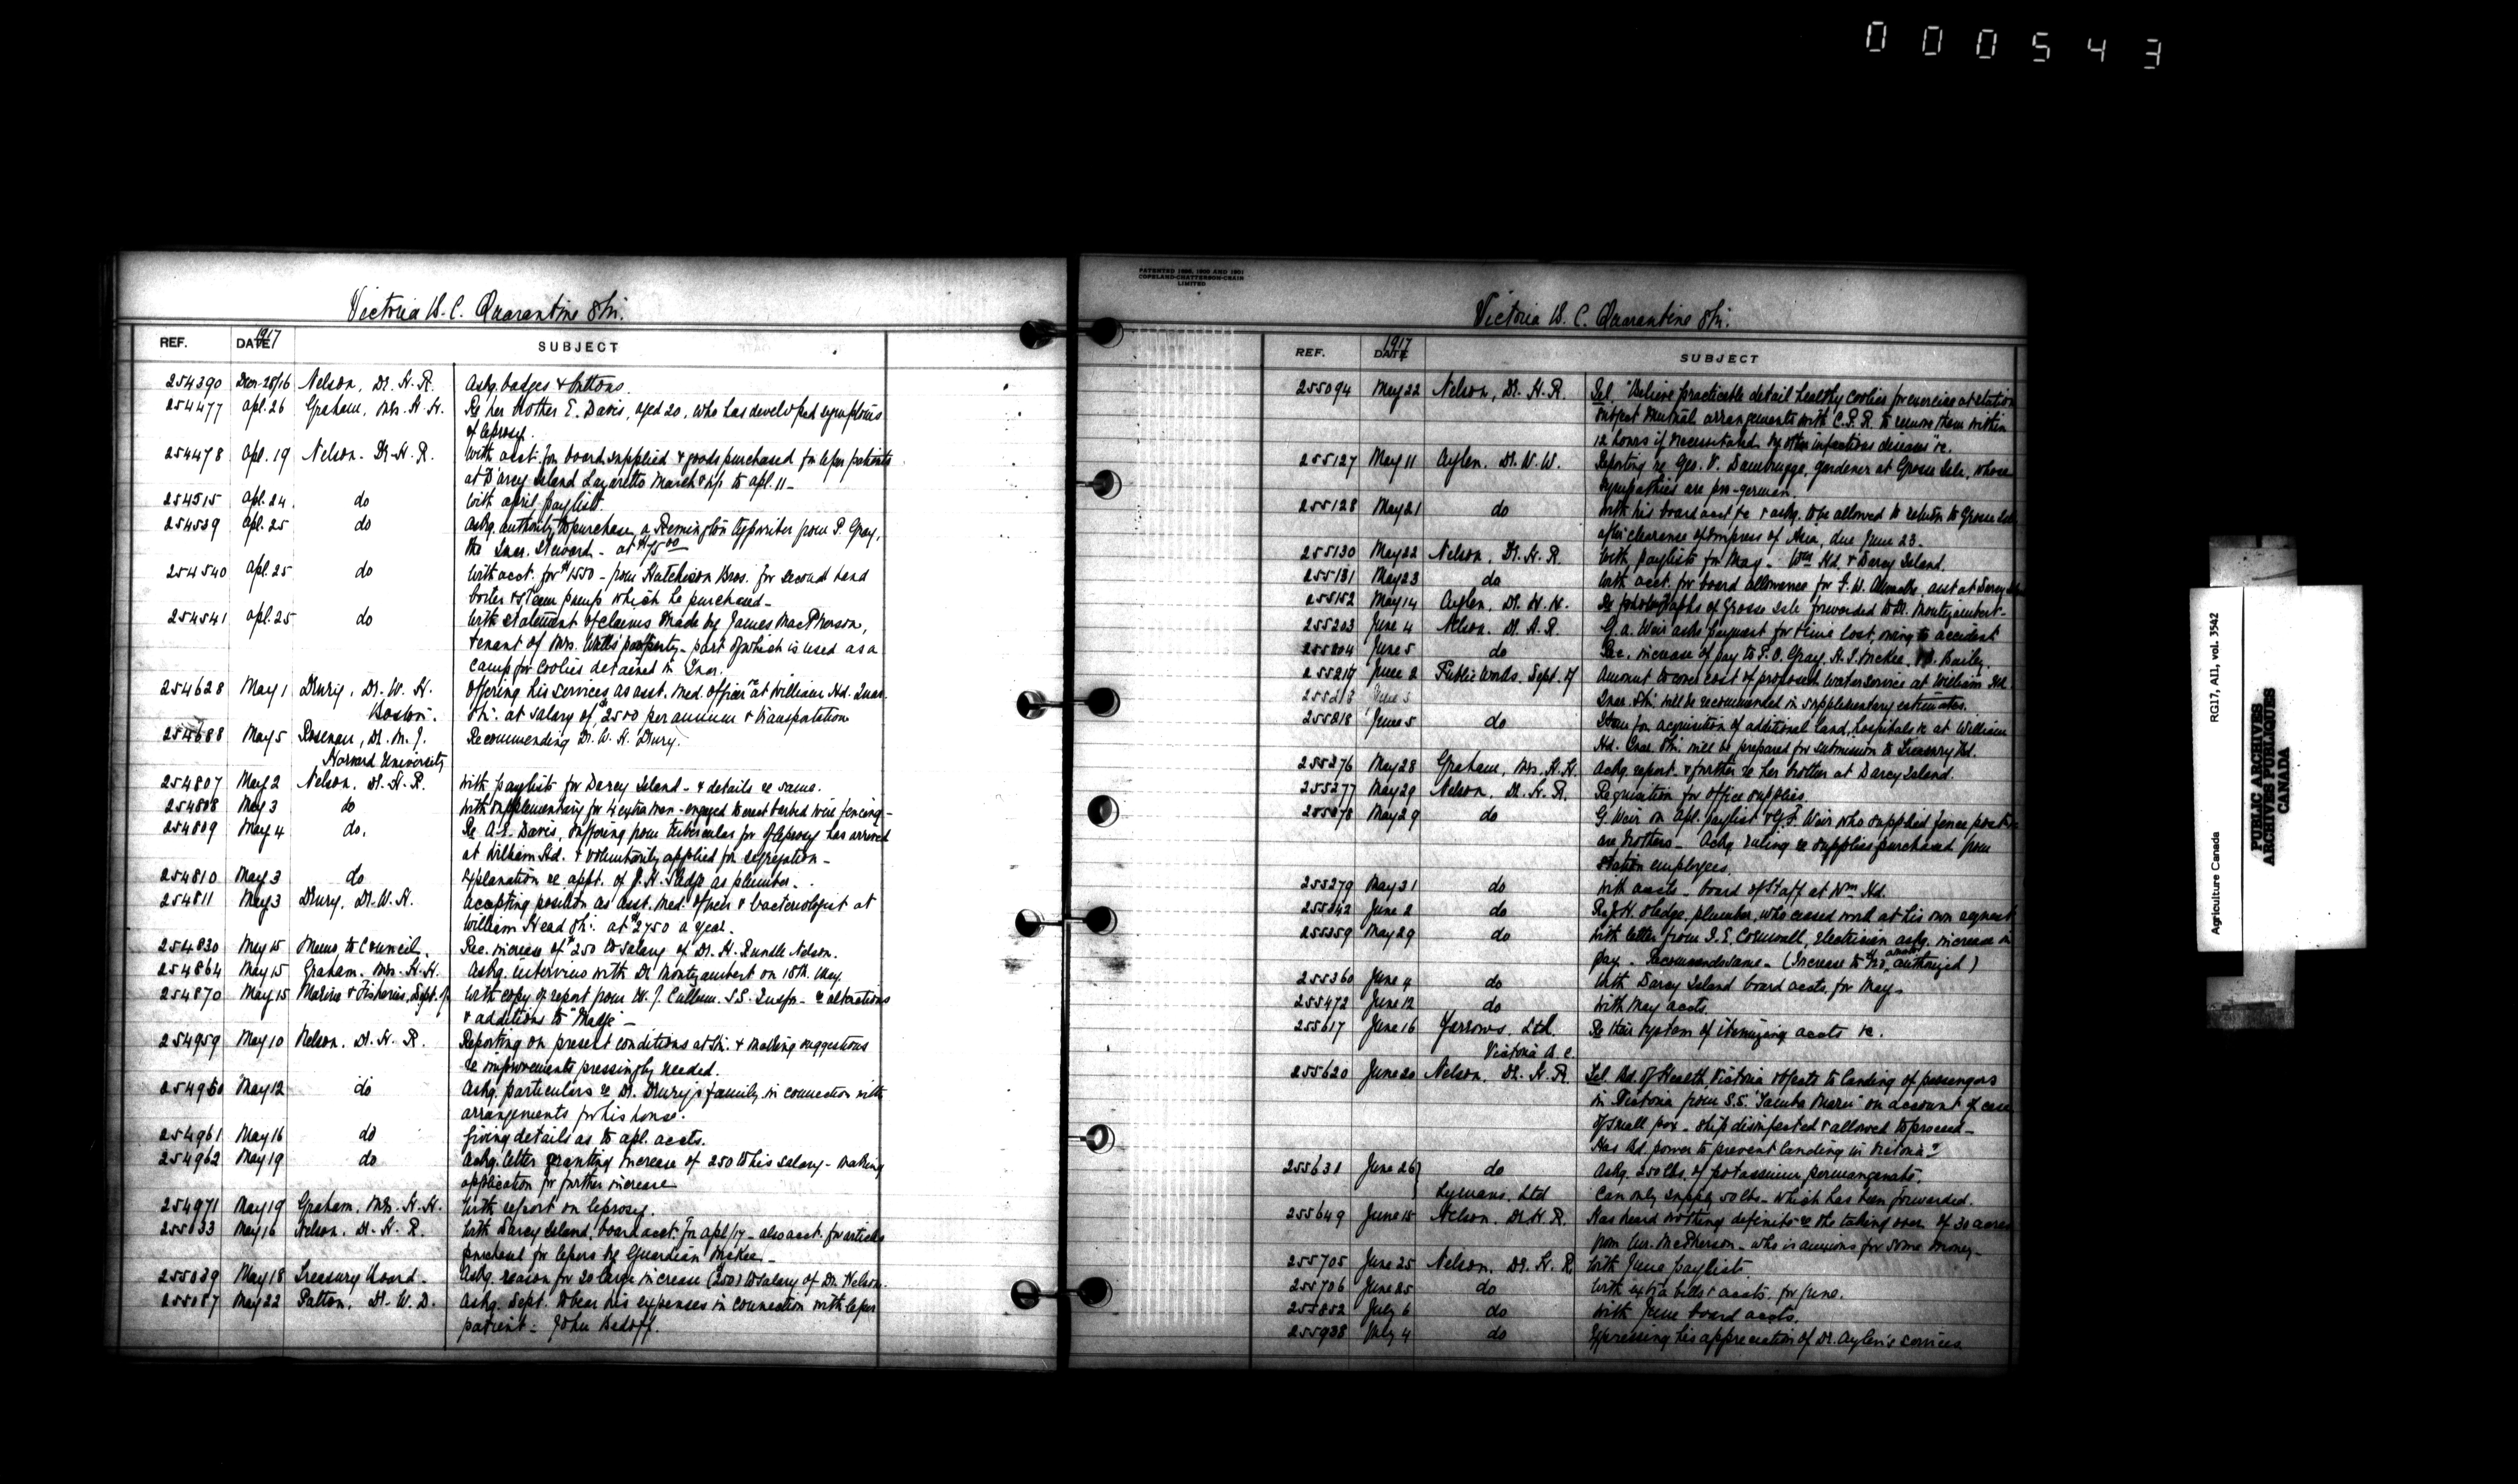 000543
Victoria B.C. Quarantine Stn.
REF. DATE 1917 SUBJECT
254390 Nelson, Dr. H. R. Askg. badges & buttons.
254477 Apl. 26 Graham, Mrs. H. H. Re her brother E. Davis, aged 20, who has developed symptoms
of leprosy.
254478 Apl. 19 Nelson. Dr. H. R. With acct. for board supplied & goods purchased for leper patients
at D'arcy Island Lazaretto March & up to Apl. 11 -
254515 Apl. 24. do With April paylist.
254539 Apl. 25 do Askg. authority to purchase a Remington typewriter from P. Gray,
the Quar. Steward - at $75 00
254540 Apl. 25 do With acct. for $1550 - from Hutchison Bros. for second hand
boiler & steam pump which he purchased -
254541 Apl. 25 do With statement of claims made by James MacPherson,
tenant of Mrs. property - part of which is used as a
camp for Coolies detained in Quar.
254628 May 1 Drury, Dr. W. H. Offering his services as asst. med. officer at William Hd. Quar.
Boston. Stn. at salary of $2500 per annum & transportation
254688 May 5 Rosenau, Dr. M. J. Recommending Dr. W. H. Drury.
Harvard University
254807 May 2 Nelson, Dr. H. R. With paylists for Darcy Island - & details re same.
254808 May 3 do With supplementary for 4 extra men - engaged to erect barbed wire fencing -
254809 May 4 do. Re A. E. Davis, suffering from tubercular for of leprosy has arrived
at William Hd. & voluntarily applied for segregation -
254810 May 3 do Explanation re appt. of J. H. Sledge as plumber.
254811 May 3 Drury, Dr. W. H. Accepting position as asst. med. officer & bacteriologist at
William Head Stn. at $2750 a year.
254830 May 15 Memo. to Council. Rec. increase of $250 to salary of Dr. H. Rundle Nelson.
254864 May 15 Graham, Mrs. H. H. Askg. interview with Dr. Montizambert on 18th. May.
254870 May 15 Marine & Fisheries, Dept. of With copy of report from W. J. Cullum. S.S. Inspr. - re alterations
& additions to "Madge" -
254959 May 10 Nelson, Dr. H. R. Reporting on present conditions at Stn. & making suggestions
re improvements pressingly needed.
254960 May 12 do Askg. particulars re Dr. Drury's family in connection with
arrangements for his house.
254961 May 16 do Giving details as to Apl. accts.
254962 May 19 do Askg. letter granting increase of 250 to his salary - making
application for further increase
254971 May 19 Graham, Mrs. H. H. With report on leprosy.
255033 May 16 Nelson, Dr. H. R. With Darcy Island, board acct. for Apl/17 - also acct. for articles
purchased for lepers by Guardian McKee -
255039 May 18 Treasury Board - Askg. reason for so large increase (250) to salary of Dr. Nelson.
255087 May 22 Patton, Dr. W. D. Askg. Dept. to bear his expenses in connection with leper
patient - John
PATENTED 1896, 1899 AND 1901
COPELAND-CHATTERSON-CRAIN
LIMITED
Victoria B. C. Quarantine Stn.
REF. DATE 1917 SUBJECT
255094 May 22 Nelson, Dr. H. R. Tel. "Believe practicable detail healthy coolies for exercise at station
subject mutual arrangements with C.P.R. to remove them within
12 hours if necessitated by other infectious diseases" &c.
255127 May 11 Aylen, Dr. W. W. Reporting re Geo. V. gardener at Grosse Isle, whose
sympathies are pro-german.
255128 May 21 do With his board acct &c & askg. to be allowed to return to Grosse Isle
after clearance of Empress of Asia, due June 23.
255130 May 22 Nelson, Dr. H. R. With paylists for May - Wm Hd. & Darcy Island.
255131 May 23 do With acct. for board allowance for F. W. asst at Darcy
255152 May 14 Aylen, Dr. W. W. Re photographs of Grosse Isle forwarded to Dr. Montizambert -
255203 June 4 Nelson, Dr. H. R. G. A. Weir asks payment for time lost, owing to accident
255204 June 5 do Rec. increase of pay to P. O. Gray, H. I. McKee, Bailey.
255217 June 2 Public Works, Dept. of Amount to cover cost of proposed water service at William Hd
255218 June 5 Quar. Stn. will be recommended in supplementary estimates.
255218 June 5 do Item for acquisition of additional land, hospitals &c at William
Hd. Quar. Stn. will be prepared for submission to Treasury Bd.
255276 May 28 Graham, Mrs. H. H. Askg. report & further re her brother at Darcy Island.
255277 May 29 Nelson, Dr. H. R. Requisition for office supplies.
255278 May 29 do G. Weir on Apl. paylist & G. F. Weir who supplied fence posts
are brothers - Askg ruling re supplies purchased from
station employees.
255279 May 31 do With accts - board of staff at Wm Hd.
255342 June 2 do Re J. H. Sledge, plumber, who ceased work at his own request
255359 May 29 do With letter from I. E. Cornwall, electrician askg. increase in
pay - Recommends same - (Increase to $120 a month authorized)
255360 June 4 do With Darcy Island board accts. for May -
255472 June 12 do With May accts.
255617 June 16 Yarrows, Ltd. Re their system of itemizing accts &c.
Victoria B. C.
255620 June 20 Nelson, Dr. H. R. Tel. Bd. of Health, Victoria objects to landing of passengers
in Victoria from S.S. "Tamba Maru" on account of case
of small pox - ship disinfected & allowed to proceed -
Has Bd. power to prevent landing in Victoria?
255631 June 26 do Askg. 250 lbs. of potassium permanganate.
Lymans, Ltd Can only supply 50 lbs - which has been forwarded.
255649 June 15 Nelson, Dr. H. R. Has heard nothing definite re the taking over of 30 acres
from Mr. McPherson - who is anxious for some money -
255705 June 25 Nelson, Dr. H. R. With June paylists.
255706 June 25 do With extra bills & accts. for June.
255852 July 6 do With June board accts.
255938 July 4 do Expressing his appreciation of Dr. Aylen's services
Agriculture Canada RG17, AII, vol. 3542
PUBLIC ARCHIVES
ARCHIVES PUBLIQUES
CANADA